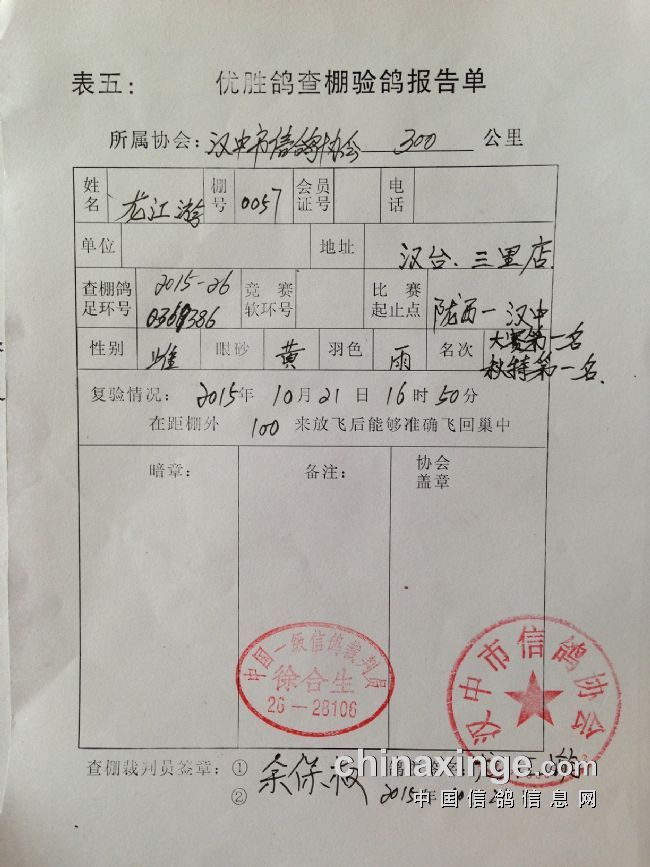 表五： 优胜鸽查棚验鸽报告单
所属协会：汉中市信鸽协会 300 公里
姓名 龙江游 棚号 0057 会员证号 电话
单位 地址 汉台．三里店
查棚鸽足环号 2015-26 0368386 竞赛软环号 比赛起止点 陇西－汉中
性别 雌 眼砂 黄 羽色 雨 名次 大赛第一名 秋特第一名
复验情况： 2015年 10 月 21 日 16 时 50 分
在距棚外 100 来放飞后能够准确飞回巢中
暗章： 备注： 协会盖章
中国一级信鸽裁判员
徐合生
26－28106
汉中市信鸽协会
查棚裁判员签章：①
② 2015年
chinaxinge.com
中国信鸽信息网